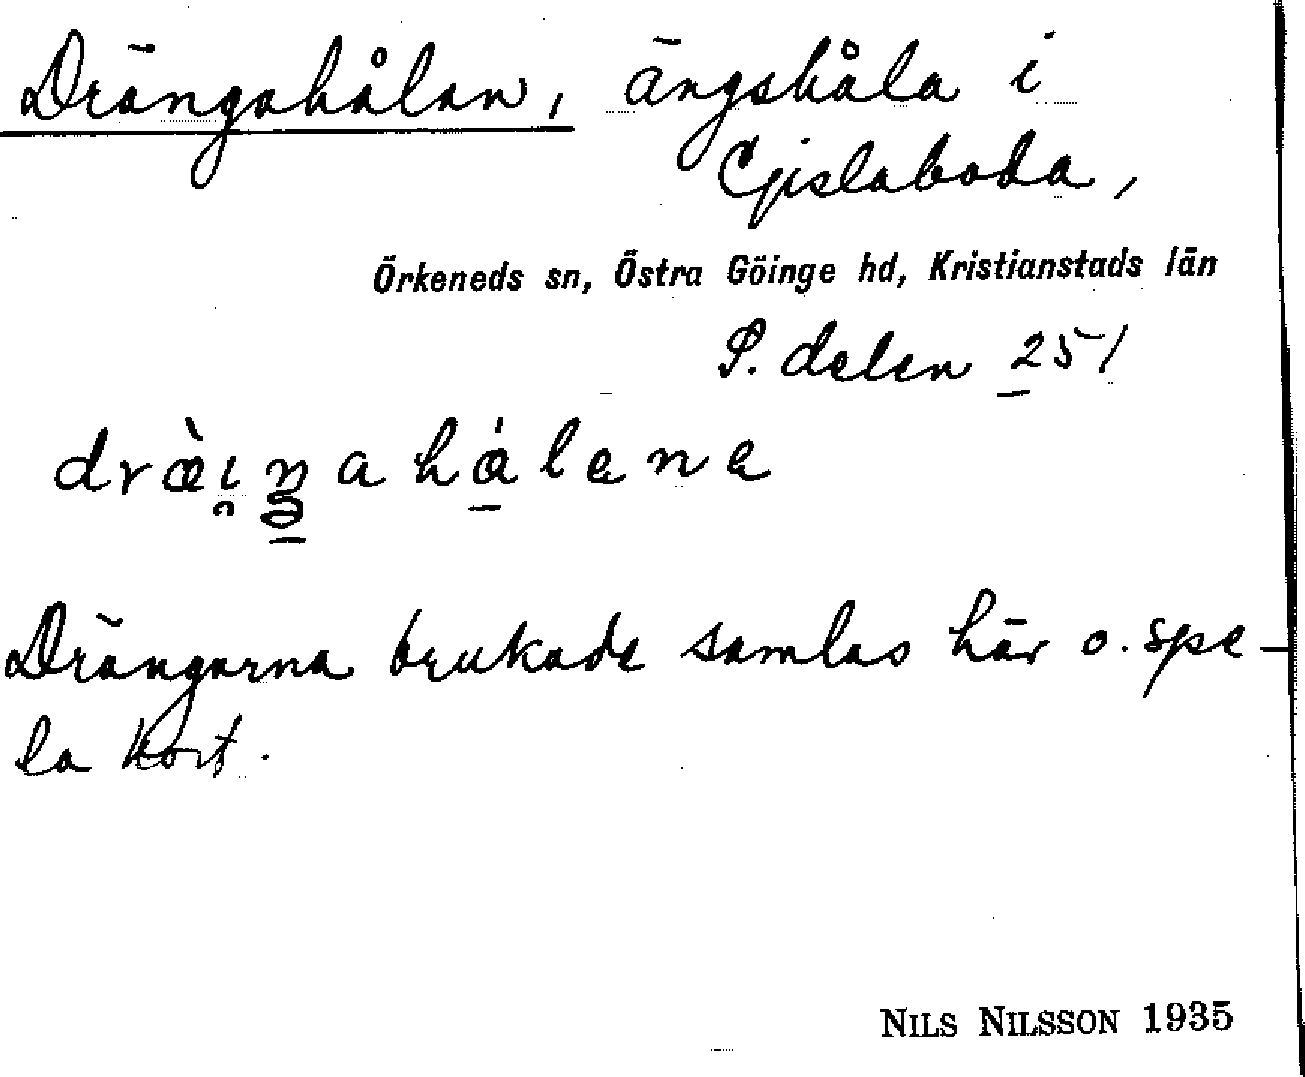 Drängahålan, ängshåla i
Gislaboda,
Örkeneds sn, Östra Göinge hd, Kristianstads län
S. delen 251
Drängarna brukade samlas här o. spe-
la kort.
NILS NILSSON 1935